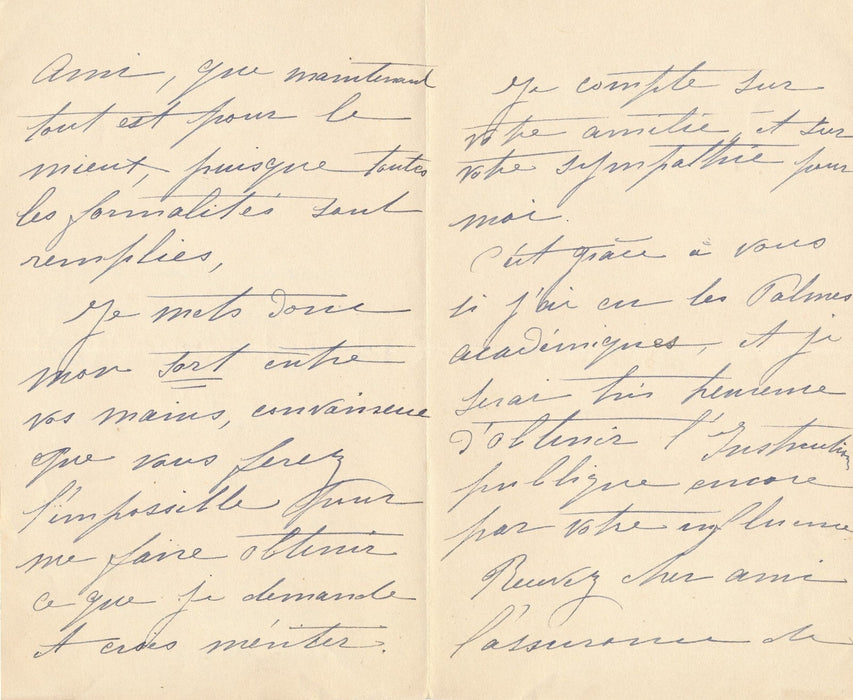 Ami, que maintenant
tout est pour le
mieux, puisque toutes
les formalités sont
remplies,
Je mets donc
mon sort entre
vos mains, convaincue
que vous ferez
l'impossible pour
me faire obtenir
ce que je demande
et crois mériter.
Je compte sur
votre amitié, et sur
votre sympathie pour
moi.
C'est grâce à vous
si j'ai eu les Palmes
académiques, et je
serai très heureuse
d'obtenir l'Instruction
publique encore
par votre influence
Recevez cher ami
l'assurance de